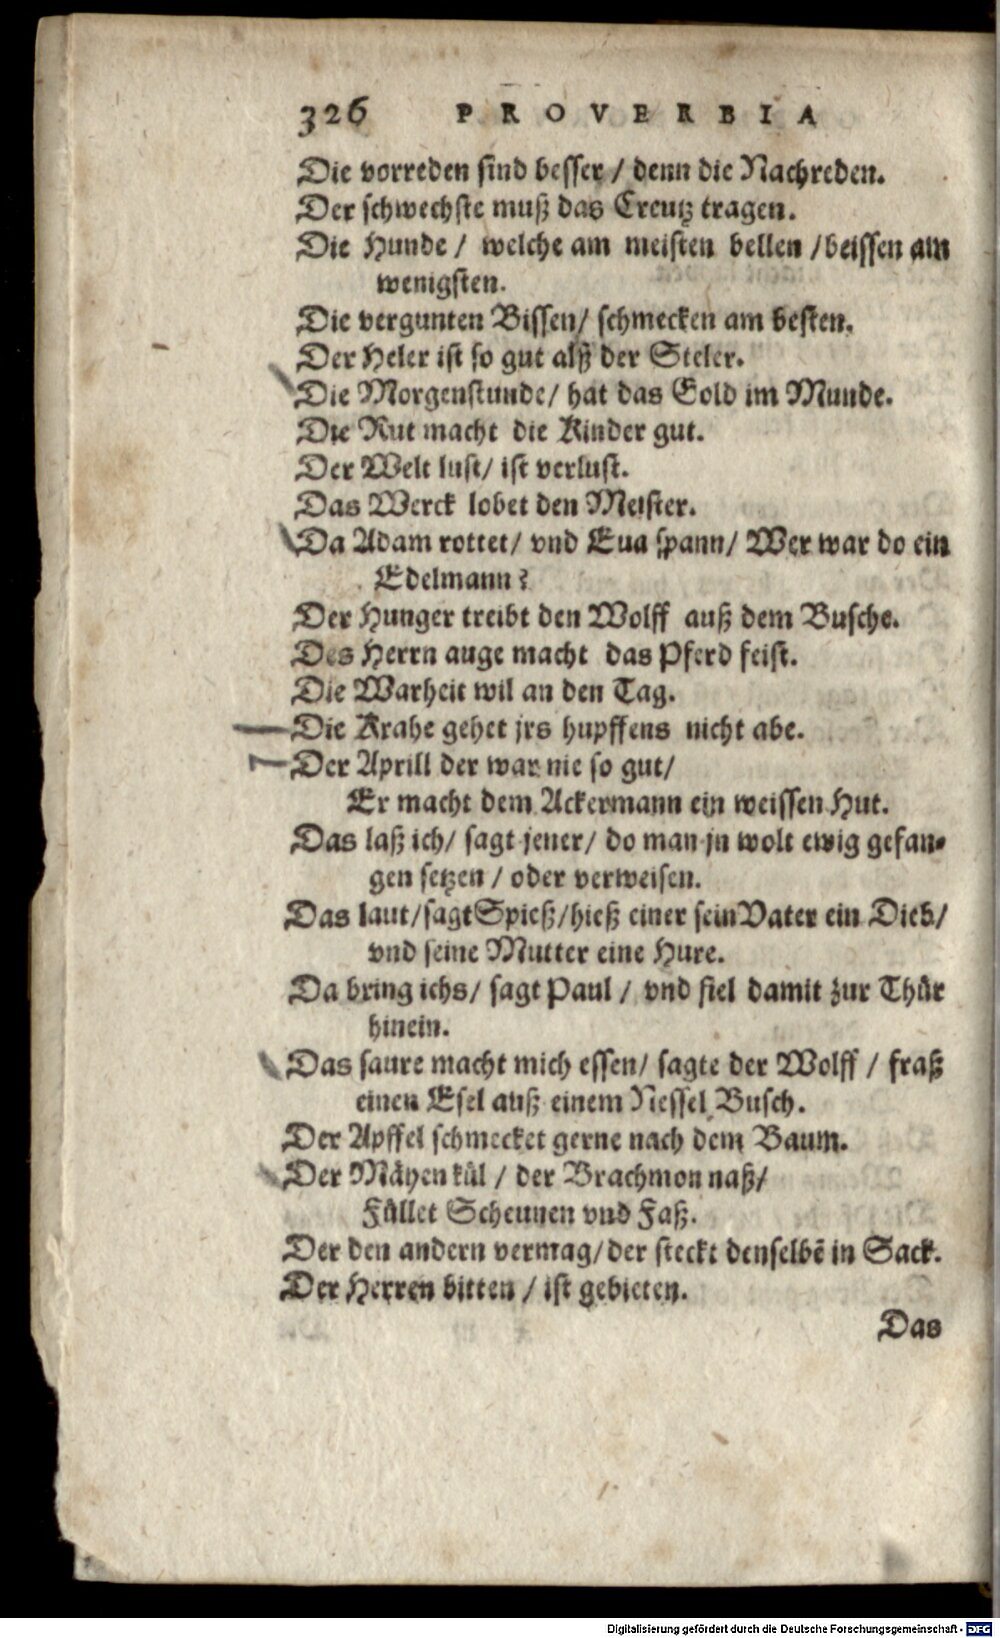 326 PROVERBIA
Die vorreden sind besser / denn die Nachreden.
Der schwechste muß das Creutz tragen.
Die Hunde / welche am meisten bellen / beissen am
wenigsten.
Die vergunten Bissen / schmecken am besten.
Der Heler ist so gut alß der Steler.
Die Morgenstunde / hat das Gold im Munde.
Die Rut macht die Kinder gut.
Der Welt lust / ist verlust.
Das Werck lobet den Meister.
Da Adam rottet / vnd Eua spann / Wer war do ein
Edelmann?
Der Hunger treibt den Wolff auß dem Busche.
Des Herrn auge macht das Pferd feist.
Die Warheit wil an den Tag.
Die Krahe gehet jrs hupffens nicht abe.
Der Aprill der war nie so gut /
Er macht dem Ackermann ein weissen Hut.
Das laß ich / sagt jener / do man jn wolt ewig gefan-
gen setzen / oder verweisen.
Das laut / sagt Spieß / hieß einer sein Vater ein Dieb /
vnd seine Mutter eine Hure.
Da bring ichs / sagt Paul / vnd fiel damit zur Thür
hinein.
Das saure macht mich essen / sagte der Wolff / fraß
einen Esel auß einem Nessel Busch.
Der Apffel schmecket gerne nach dem Baum.
Der Mäyen kül / der Brachmon naß /
Füllet Scheunen vnd Faß.
Der den andern vermag / der steckt denselbē in Sack.
Der Herren bitten / ist gebieten.
Das
Digitalisierung gefördert durch die Deutsche Forschungsgemeinschaft - DFG